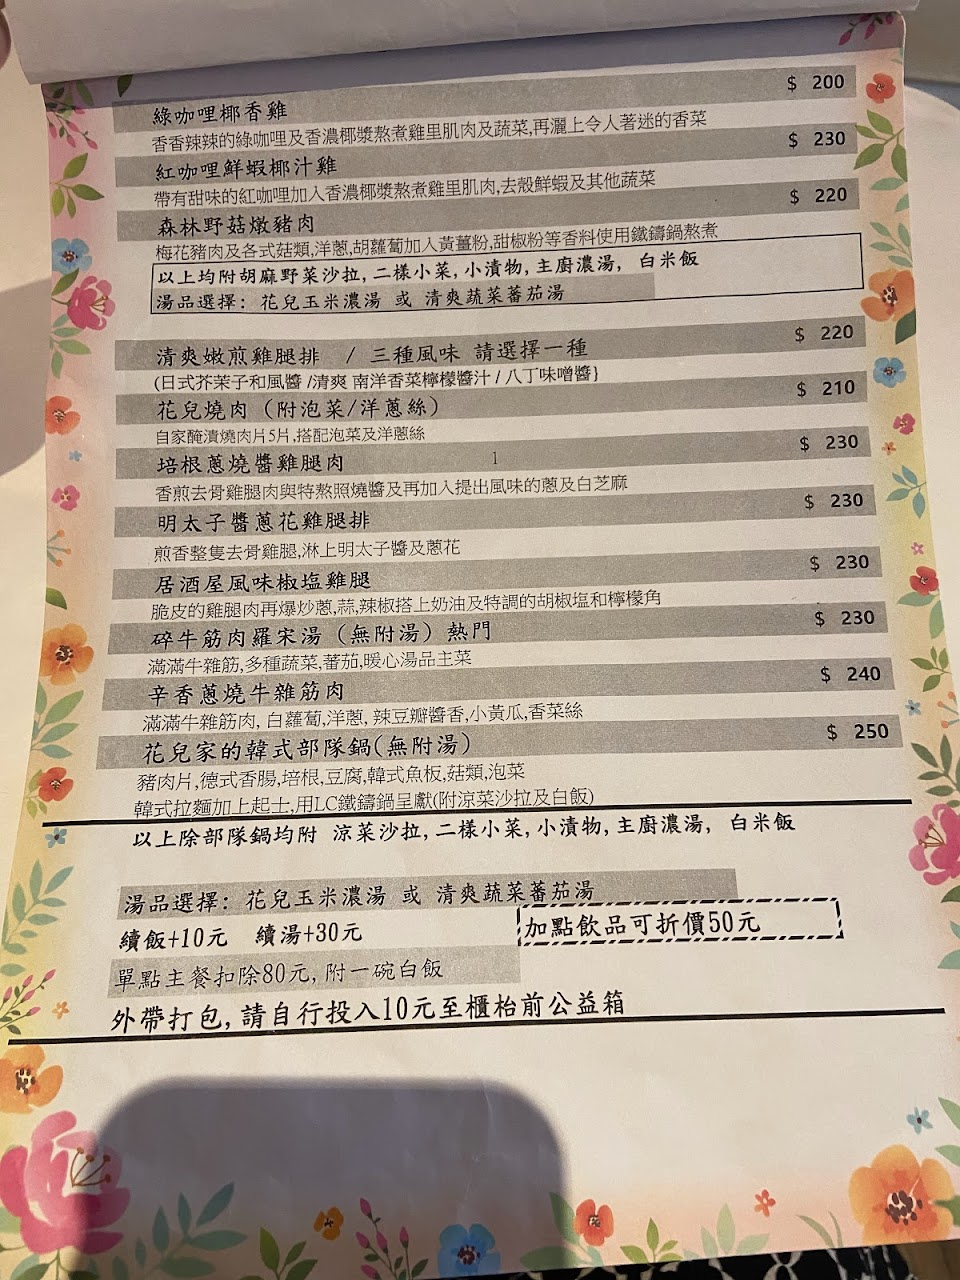 綠咖哩椰香雞 $ 200
香香辣辣的綠咖哩及香濃椰漿熬煮雞里肌肉及蔬菜,再灑上令人著迷的香菜
紅咖哩鮮蝦椰汁雞 $ 230
帶有甜味的紅咖哩加入香濃椰漿熬煮雞里肌肉,去殼鮮蝦及其他蔬菜
森林野菇燉豬肉 $ 220
梅花豬肉及各式菇類,洋蔥,胡蘿蔔加入黃薑粉,甜椒粉等香料使用鐵鑄鍋熬煮
以上均附胡麻野菜沙拉,二樣小菜,小漬物,主廚濃湯, 白米飯
湯品選擇: 花兒玉米濃湯 或 清爽蔬菜蕃茄湯
清爽嫩煎雞腿排 / 三種風味 請選擇一種 $ 220
(日式芥茉子和風醬 /清爽 南洋香菜檸檬醬汁 / 八丁味噌醬}
花兒燒肉 (附泡菜/洋蔥絲) $ 210
自家醃漬燒肉片5片,搭配泡菜及洋蔥絲
培根蔥燒醬雞腿肉 1 $ 230
香煎去骨雞腿肉與特熬照燒醬及再加入提出風味的蔥及白芝麻
明太子醬蔥花雞腿排 $ 230
煎香整隻去骨雞腿,淋上明太子醬及蔥花
居酒屋風味椒塩雞腿 $ 230
脆皮的雞腿肉再爆炒蔥,蒜,辣椒搭上奶油及特調的胡椒塩和檸檬角
碎牛筋肉羅宋湯 (無附湯) 熱門 $ 230
滿滿牛雜筋,多種蔬菜,蕃茄,暖心湯品主菜
辛香蔥燒牛雜筋肉 $ 240
滿滿牛雜筋肉, 白蘿蔔,洋蔥, 辣豆瓣醬香,小黃瓜,香菜絲
花兒家的韓式部隊鍋(無附湯) $ 250
豬肉片,德式香腸,培根,豆腐,韓式魚板,菇類,泡菜
韓式拉麵加上起士,用LC鐵鑄鍋呈獻(附涼菜沙拉及白飯)
以上除部隊鍋均附 涼菜沙拉,二樣小菜,小漬物,主廚濃湯, 白米飯
湯品選擇: 花兒玉米濃湯 或 清爽蔬菜蕃茄湯
續飯+10元 續湯+30元 加點飲品可折價50元
單點主餐扣除80元, 附一碗白飯
外帶打包,請自行投入10元至櫃枱前公益箱